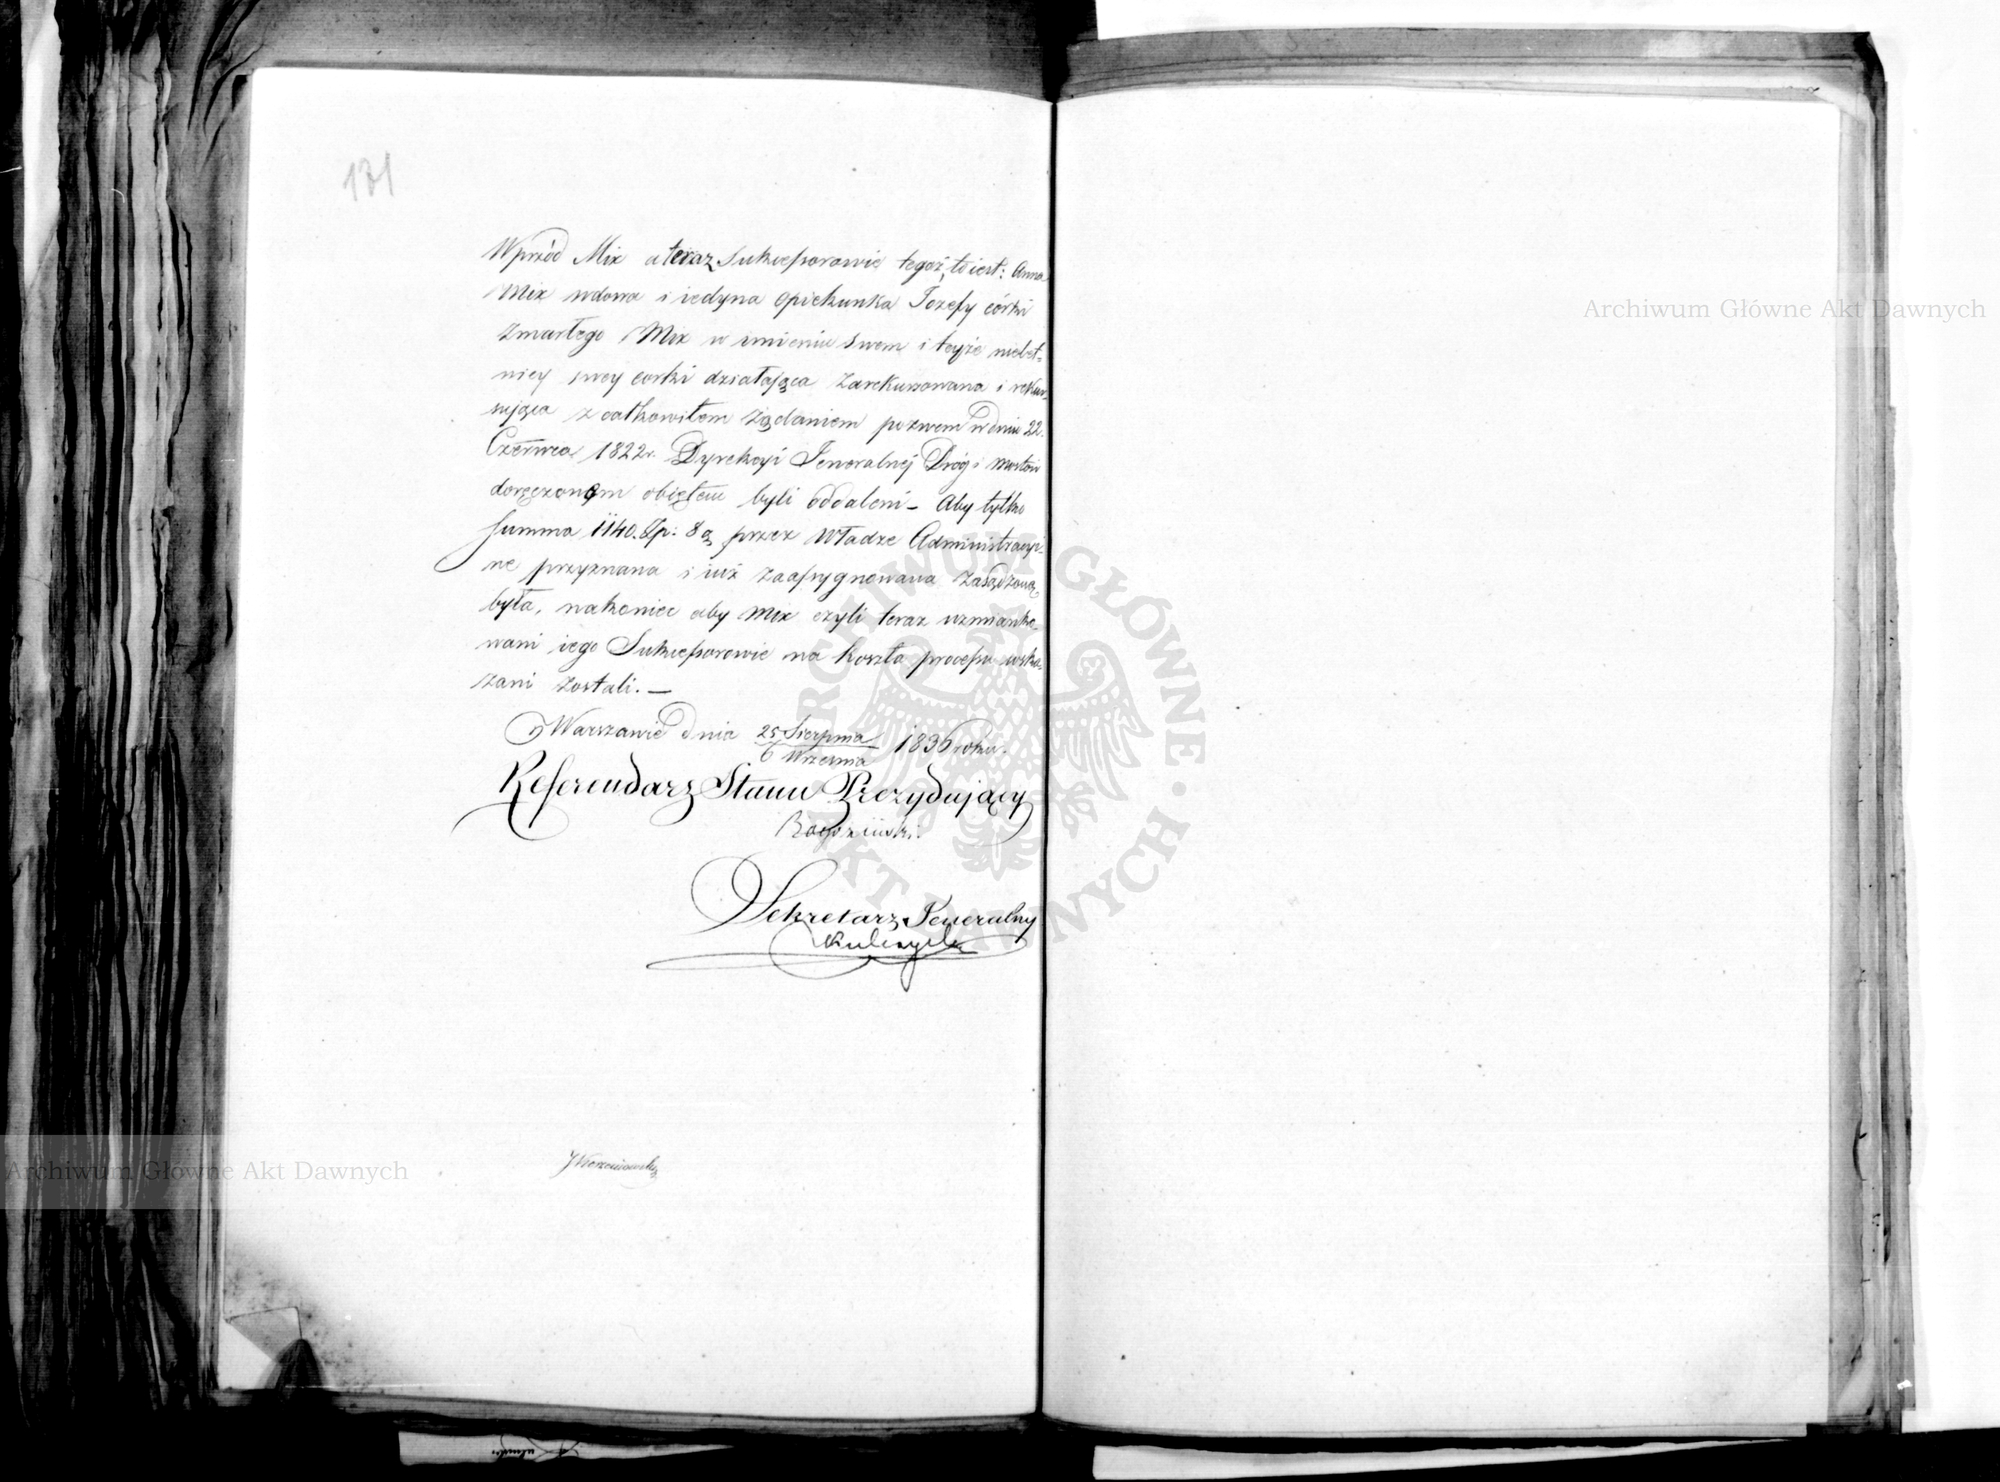 131
Wprzód Mix a teraz Sukcessorowie tegoż, to iest: Anna
Mix wdowa i iedyna opiekunka Jozefy córki
zmarłego Mix w imieniu swem i teyże nielet-
niey swey corki działająca zarekursowana i rekur-
sująca z całkowitem żądaniem pozwem w dniu 22.
Czerwca 1822 r. Dyrekcyi Jeneralnej Dróg i Mostów
doręczonem obiętem byli oddaleni – Aby tylko
summa 1140. Zp: 8 g. przez Władze Administracyi-
ne przyznana i iuż zaassygnowana zasądzoną
była, nakoniec aby Mix czyli teraz wzmianko-
wani iego Sukcessorowie na koszta processu wska-
zani zostali. –
w Warszawie dnia 25 Sierpnia
6 Września
1836 roku.
Referendarz Stanu Prezydujący
Sekretarz Jeneralny
Archiwum Główne Akt Dawnych
Archiwum Główne Akt Dawnych
ARCHIWUM GŁÓWNE AKT DAWNYCH